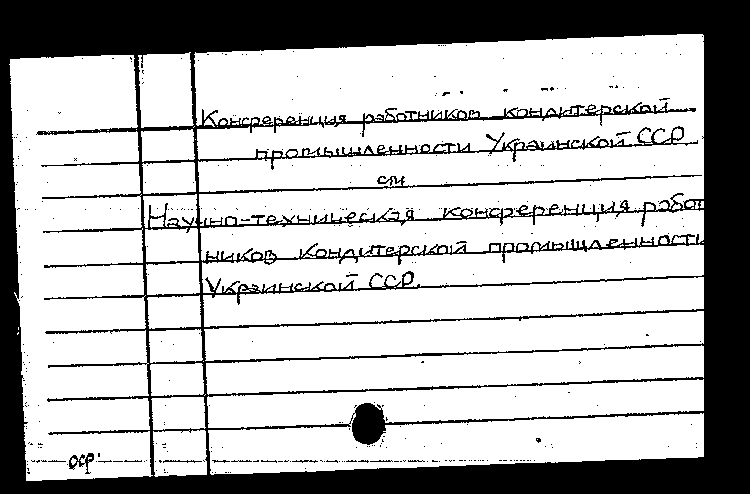 Конференция работников кондитерской
промышленности Украинской ССР
см
Научно-техническая конференция работ
ников кондитерской промышленности
Украинской ССР.